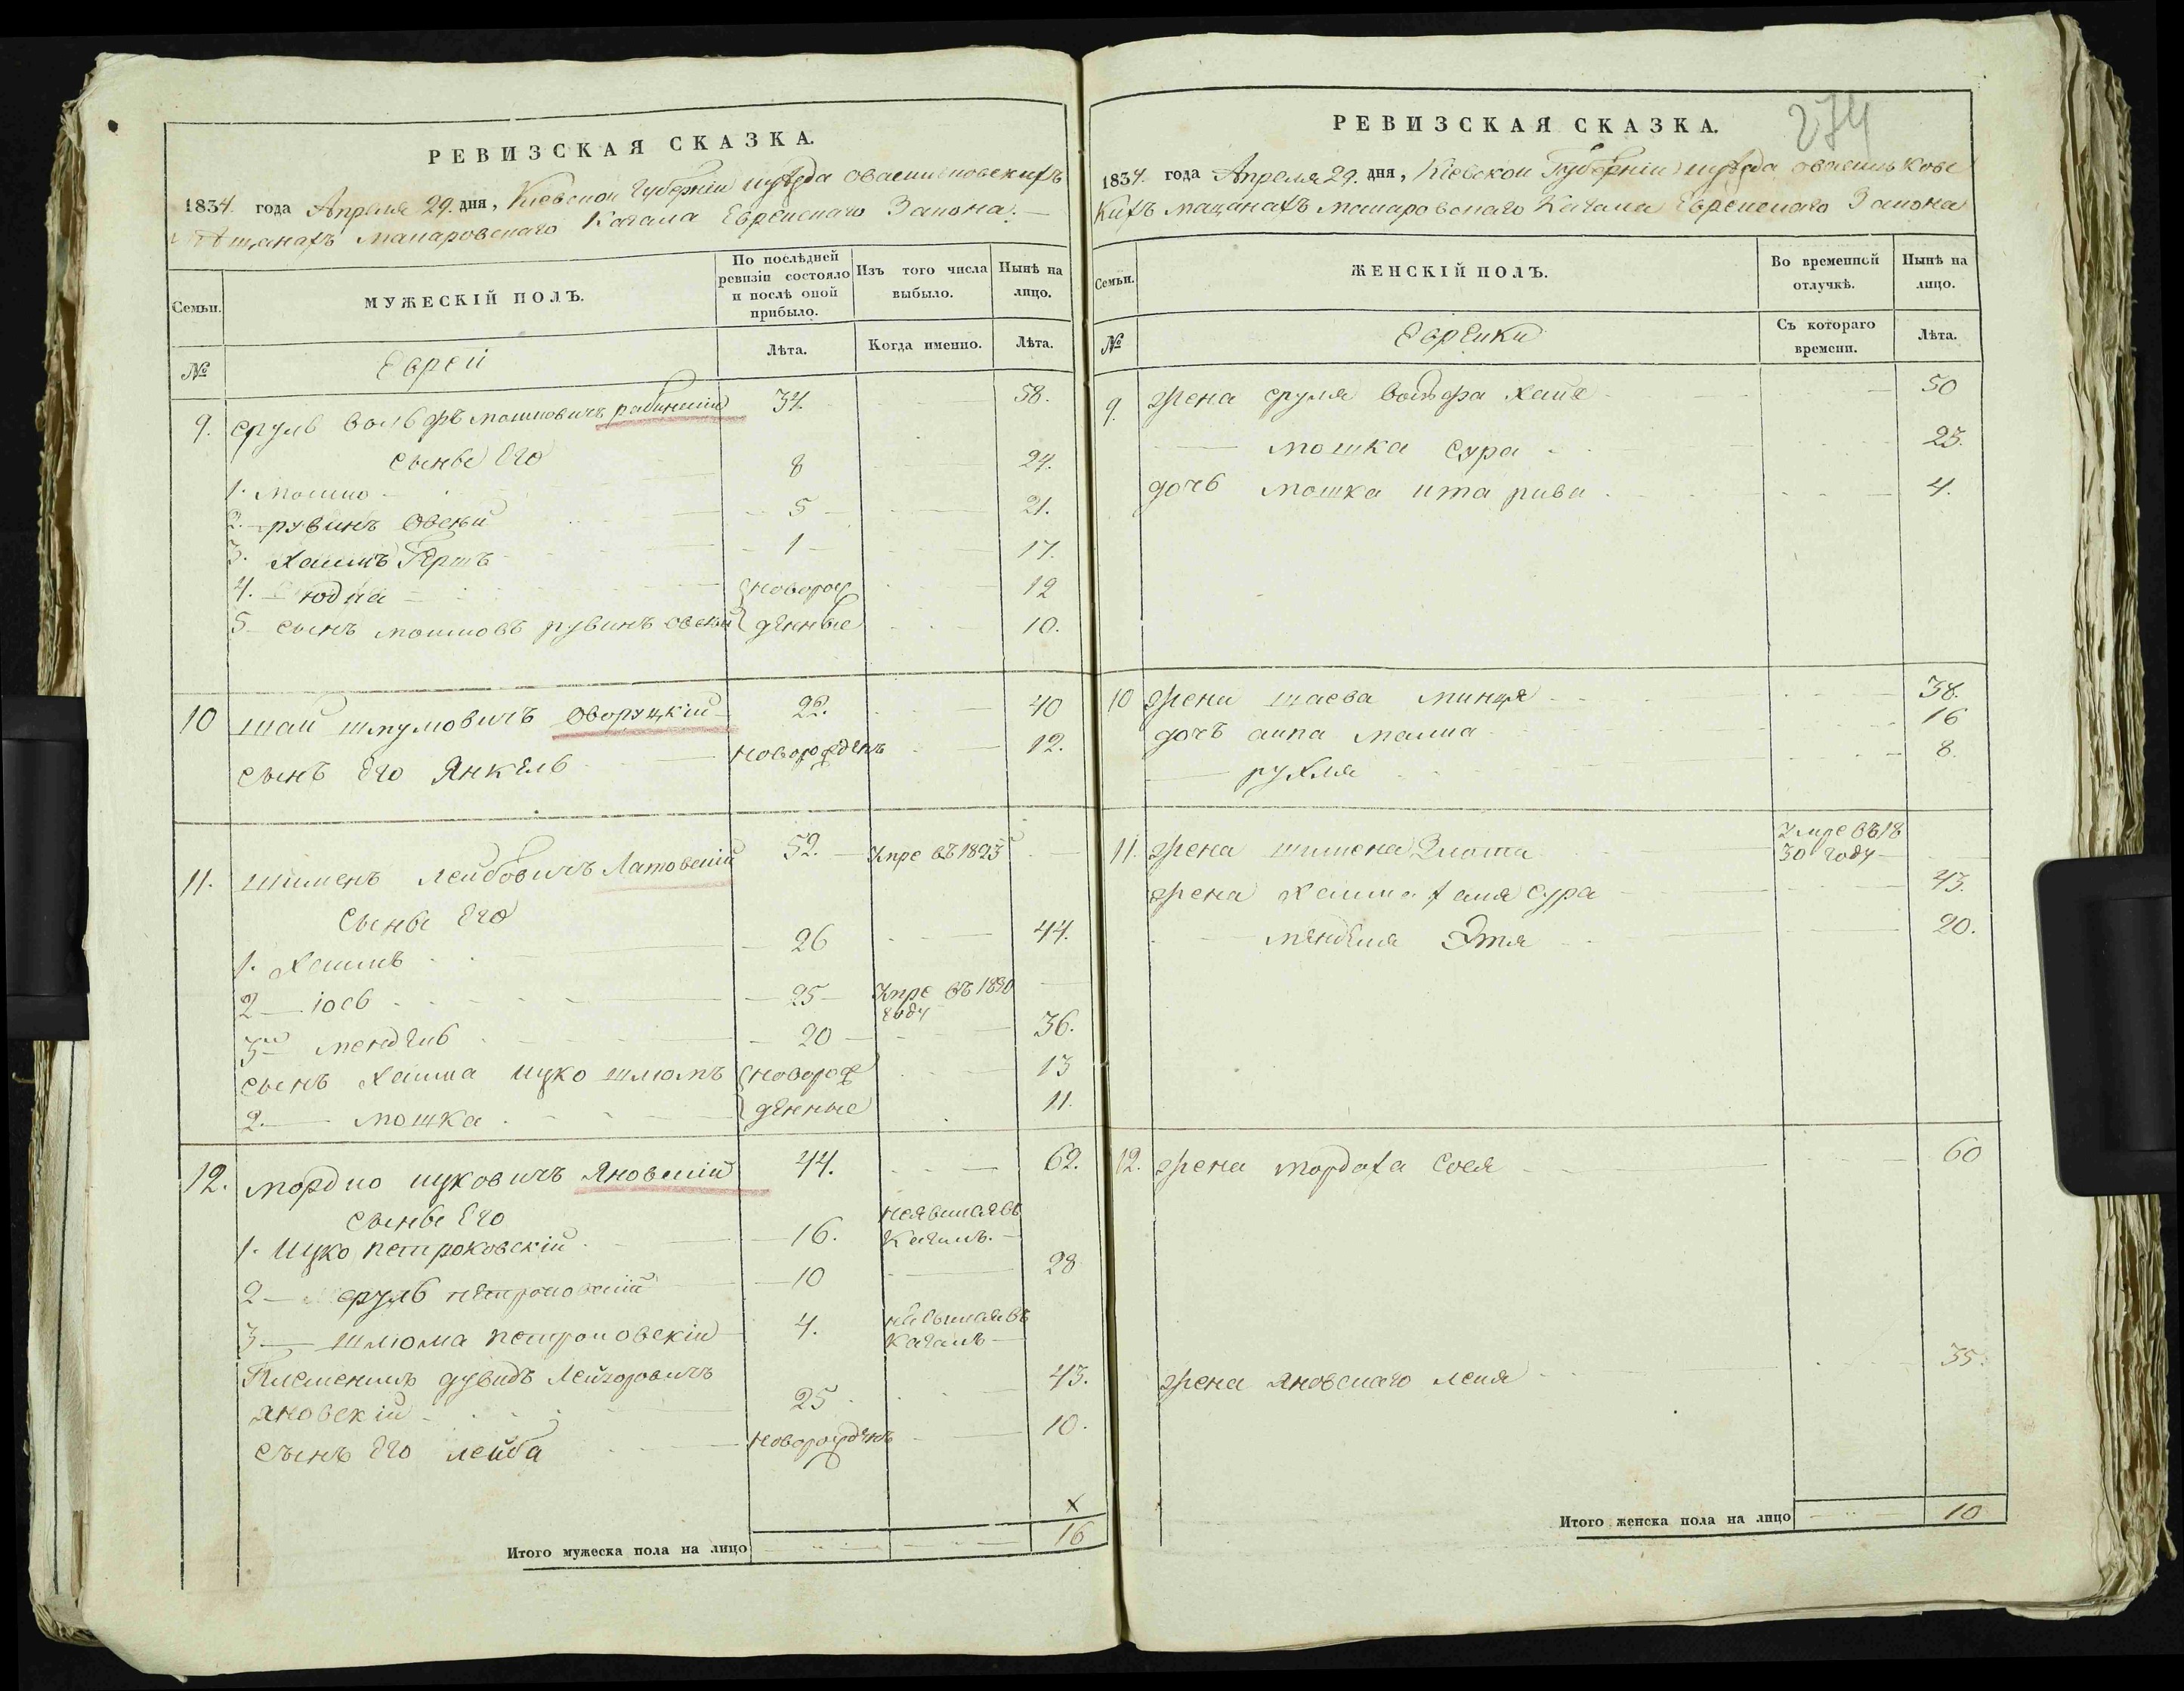 РЕВИЗСКАЯ СКАЗКА.
1834. года Апреля 29. дня, Киевской Губернии уезда овасильковскихъ
мѣщанахъ Макаровскаго Кагала Еврейскаго Закона.
Семьи.
МУЖЕСКІЙ ПОЛЪ.
По послѣдней ревизіи состояло и послѣ оной прибыло.
Изъ того числа выбыло.
Нынѣ на лицо.
№
Еврей
Лѣта.
Когда именно.
Лѣта.
9. Сруль Вольфъ Мошковичъ 34. 58.
Сыны Его
1. Мошко 8 24.
2. Рувинъ Овсѣй 5 21.
3. Хаимъ 1 17.
4. Юдка новорож 12
5 Сынъ Мошковъ Рувинъ Овсѣй денные 10.
10 Шай Шмуловичъ Оворуцкій 22. 40
Сынъ Его Янкель новорожденъ 12.
11. Шименъ Лейбовичъ Латовскій 52. Умре въ 1823
Сыны Его
1. Хаимъ 26 44.
2 Іось 25 Умре въ 1830
году
3й Мендель 20 36.
Сынъ Хаима Ицко Шлюмъ новорож 13
2. Мошка денные 11.
12. Мордко Ицковичъ Яновскій 44. 62.
Сыны Его
1. Ицко Петроковскій 16. неявился въ
Кагалъ.
2 Сруль Петроковскій 10 28
3 Шлюма Петроковскій 4. неявился въ
Кагалъ
Племенникъ Дувидъ
Яновскій 25 43.
Сынъ Его Лейба новорожденъ 10.
х
Итого мужеска пола на лицо 16
274
РЕВИЗСКАЯ СКАЗКА.
1834. года Апреля 29. дня, Кіевской Губерніи уезда овасилькове
кихъ мещанахъ Макаровскаго Кагала Еврейскаго Закона
Семьи.
ЖЕНСКІЙ ПОЛЪ.
Во временной отлучкѣ.
Нынѣ на лицо.
№
Еврейки
Съ котораго времени.
Лѣта.
9. Жена Сруля Вольфа Хаия 50
Мошка Сура 23.
дочь Мошка Ита Рива 4.
10 Жена Шаева Минця 38.
дочъ Малка 16
Рухля 8.
11. Жена Шимена Злота Умре въ 18
30 году
Жена Хаима Сура 43.
Менделя Этя 20.
12. Жена Мордоха Сося 60
Жена Яновскаго Лея 35.
Итого женска пола на лицо 10